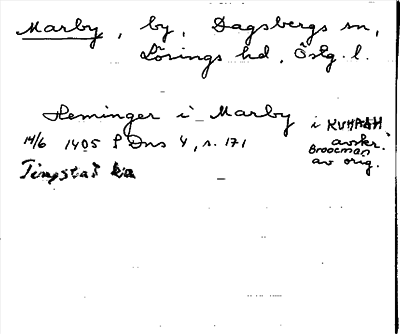 Marby, by, Dagsbergs sn,
Lösings hd, Östg. l.
Heminger i Marby i KVHAAH
avskr.
14/6 1405 SDns 4, s. 171
Broocman
av orig.
Tingstad ka